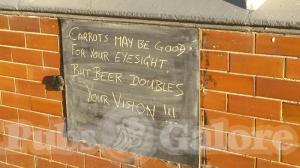 CARROTS MAY BE GOOD
FOR YOUR EYESIGHT
BUT BEER DOUBLES
YOUR VISION !!!
Pubs Galore